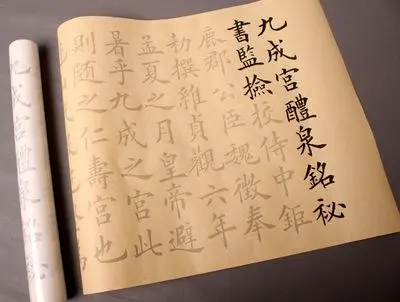 九成宮醴泉銘祕
書監撿校侍中鉅
鹿郡公臣魏徵奉
勑撰維貞觀六年
孟夏之月皇帝避
暑乎九成之宮此
則随之仁壽宮也
九成宮醴泉銘祕